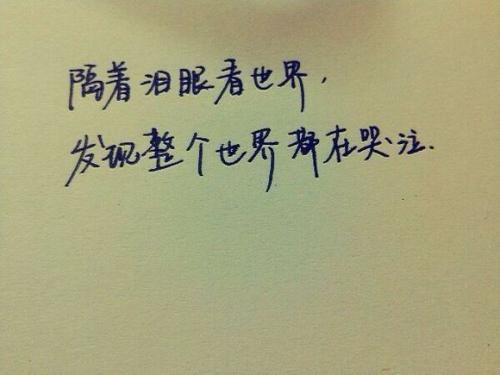 隔着泪眼看世界,
发现整个世界都在哭泣.